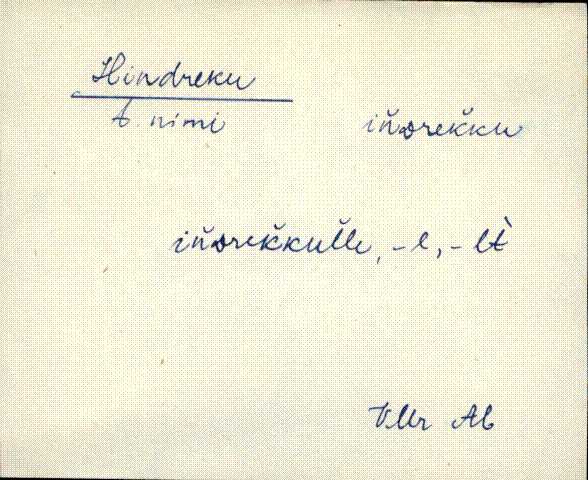 Hindreku
t nimi iňᴅrek̆ku
iňᴅrek̆kul̆le, -l, -lt̀
VMr Ab